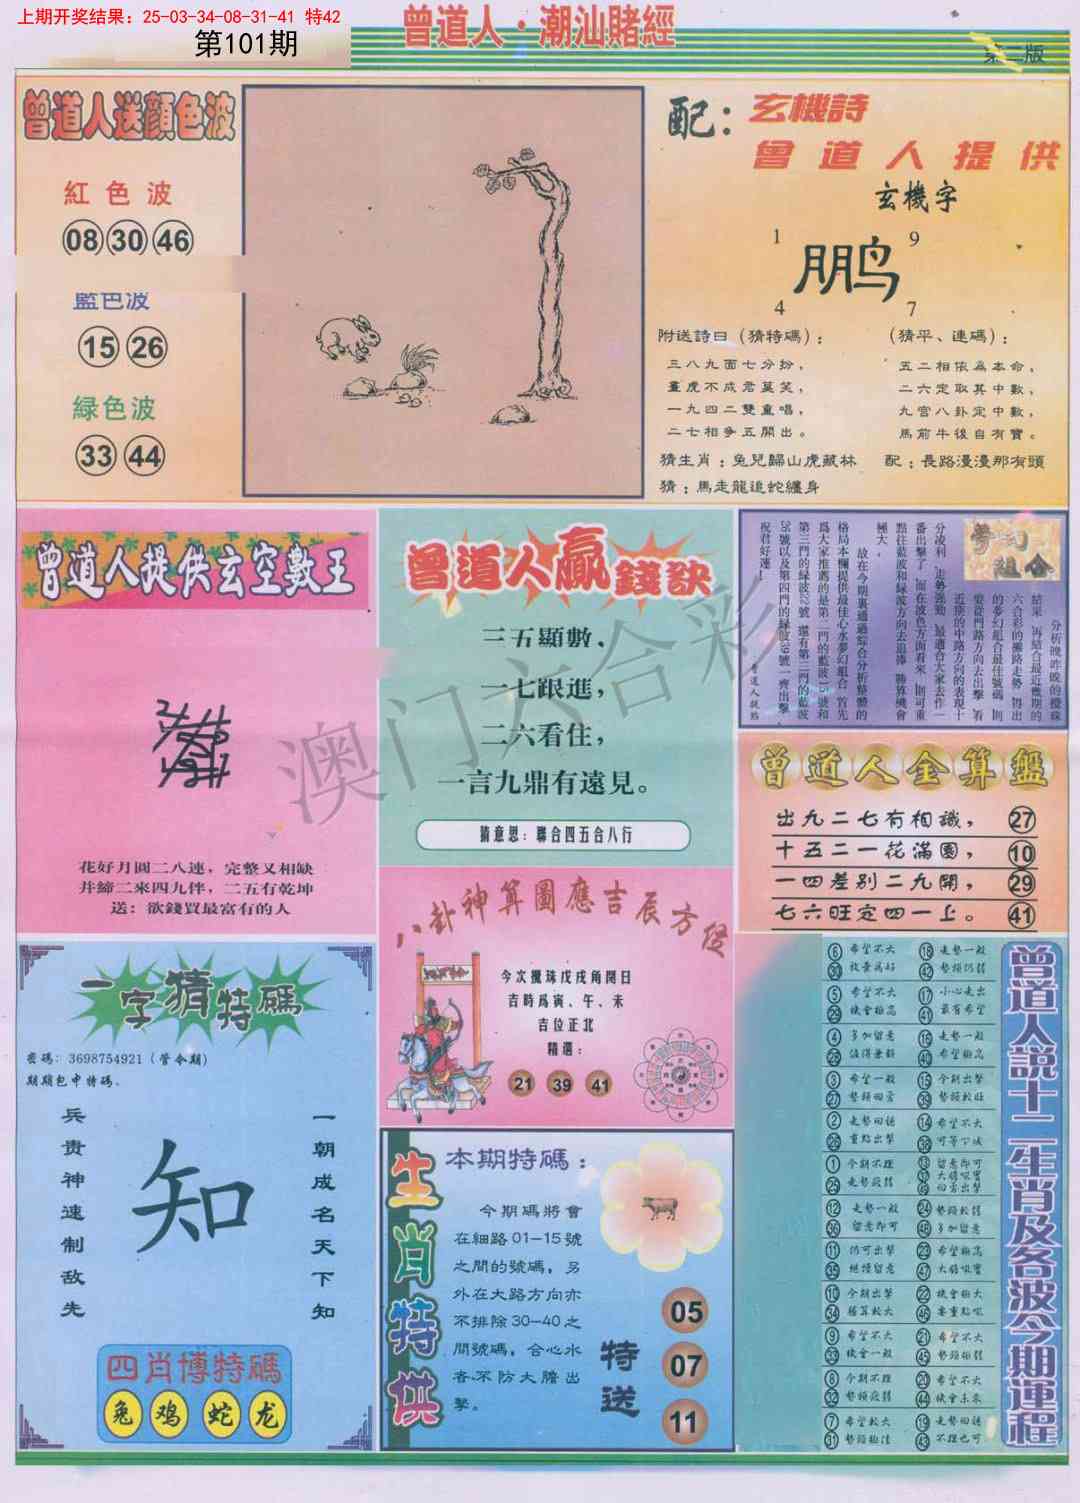 上期开奖结果：25-03-34-08-31-41 特42
第101期
曾道人·潮汕賭經
第二版
曾道人送顔色波
紅色波
08 30 46
藍色波
15 26
緑色波
33 44
配：玄機詩
曾道人提供
玄機字
1 9
鹏
4 7
附送詩曰（猜特碼）：
三八九面七分扮，
畫虎不成君莫笑，
一九四二雙重唱，
二七相爭五開出。
猜生肖：兔兒歸山虎藏林
猜：馬走龍追蛇纏身
（猜平、連碼）：
五二相依為本命，
二六定取其中數，
九宮八卦定中數，
馬前牛後自有寶。
配：長路漫漫那有頭
曾道人提供玄空數王
花好月圓二八連，完整又相缺
井締二來四九伴，二五有乾坤
送：欲錢買最富有的人
曾道人贏錢訣
三五顯數，
一七跟進，
二六看住，
一言九鼎有遠見。
猜意思：聯合四五合八行
夢幻組合
分析晚昨晚的攪珠
結果，再結合最近幾期的
六合彩的攤路走勢，得出
的夢幻組合最佳號碼，則
要從門路方向去出擊，看
近院的中路方向的表現十
分凌利，走勢強勁，最適合大家去作一
番出擊了，而在波色方面看來，則可重
點往藍波和緑波方向去追捧，勝算機會
極大。
故在今期裏通過綜合分析整體的
格局本欄提供最佳心水夢幻組合，首先
爲大家推薦的是第二門的藍波15號和
第三門的緑波22號，還有第三門的藍波
26號以及第四門的緑波39號一齊出擊，
祝君好運！
曾道人鐵筆
曾道人全算盤
出九二七有相識， 27
十五二一花滿園， 10
一四差别二九開， 29
七六旺定四一上。 41
八卦神算圖應吉辰方位
今次攪珠戊戌角閉日
吉時爲寅、午、未
吉位正北
精選：
21 39 41
一字猜特碼
密碼：3698754921（管令期）
期期包中特碼。
兵贵神速制敌先
知
一朝成名天下知
四肖博特碼
兔 鸡 蛇 龙
生肖特供
本期特碼：
今期碼將會
在細路01-15號
之間的號碼，另
外在大路方向亦
不排除30-40之
間號碼，合心水
者不防大膽出
擊。
特送
05
07
11
曾道人説十二生肖及各波今期運程
6 希望不大
30 放棄爲好
18 走勢一般
42 勢頭仍弱
5 希望不大
29 機會極高
17 小心走出
41 最有希望
4 多加留意
28 值得兼顧
16 走勢一般
40 希望極高
3 希望一般
27 勢頭回雷
15 今期出擊
39 勢頭較旺
2 走勢回穩
26 重點出擊
14 希望不大
38 可等下次
1 今期不理
25 走勢疲弱
13 留意即可
37 大膽吼實
49 回雷出擊
12 走勢一般
36 留意即可
24 勢頭較弱
48 多加留意
11 仍可出擊
35 繼續留意
23 希望極高
47 大膽吼實
10 今期出擊
34 勝算較大
22 機會極大
46 要重點吼
9 希望不大
33 機會一般
21 希望不大
45 勢頭極弱
8 今期不理
32 勢頭疲弱
20 希望不大
44 機會未來
7 希望較大
31 勢頭極佳
19 走勢回穩
43 不理也可
澳门六合彩